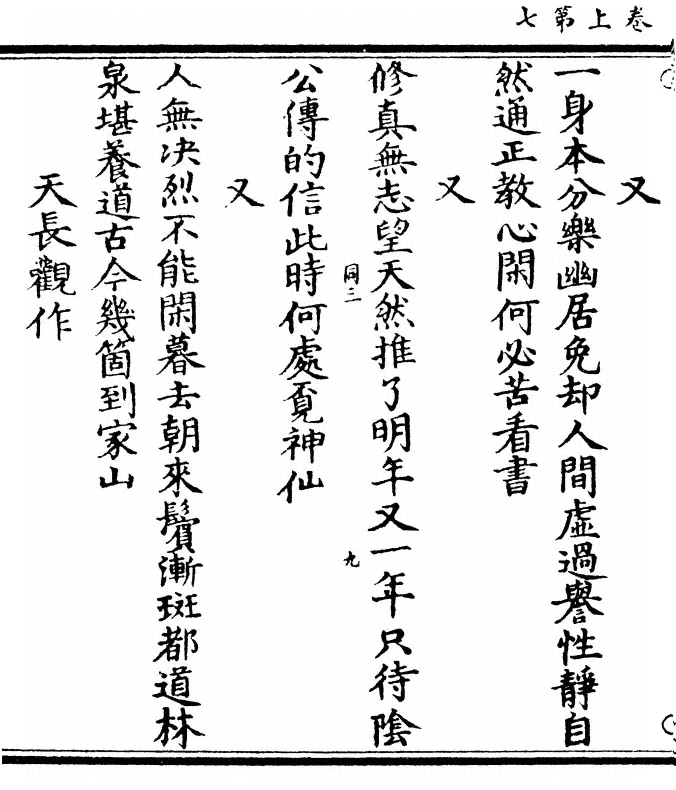 卷上第七
又
一身本分樂幽居免却人間虛過譽性靜自
然通正教心閑何必苦看書
又
修真無志望天然推了明年又一年只待陰
同三
九
公傳的信此時何處覓神仙
又
人無决烈不能閑暮去朝來鬢漸斑都道林
泉堪養道古今幾箇到家山
天長觀作